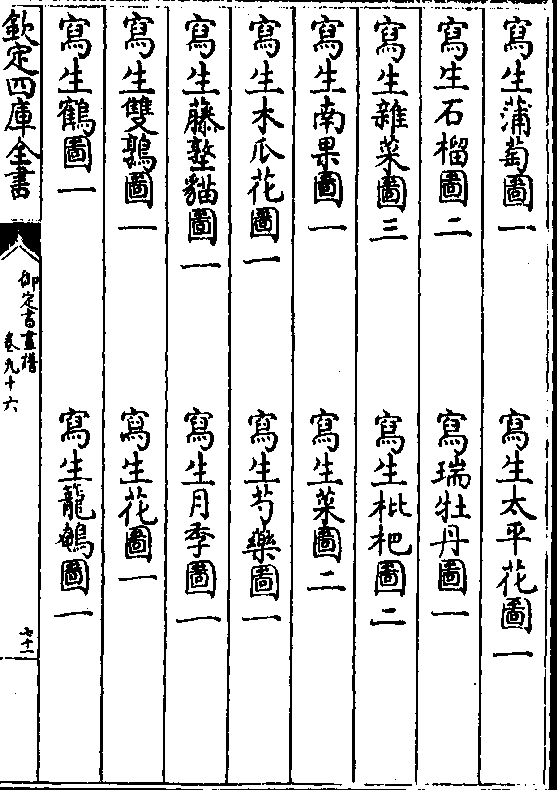 寫生蒲萄圖一 寫生太平花圖一
寫生石榴圖二 寫瑞牡丹圖一
寫生雜菜圖三 寫生枇杷圖二
寫生南果圖一 寫生菜圖二
寫生木瓜花圖一 寫生芍藥圖一
寫生藤墩貓圖一 寫生月季圖一
寫生雙鶉圖一 寫生花圖一
寫生鶴圖一 寫生籠鵪圖一
欽定四庫全書
御定書畫譜
卷九十六
七十一